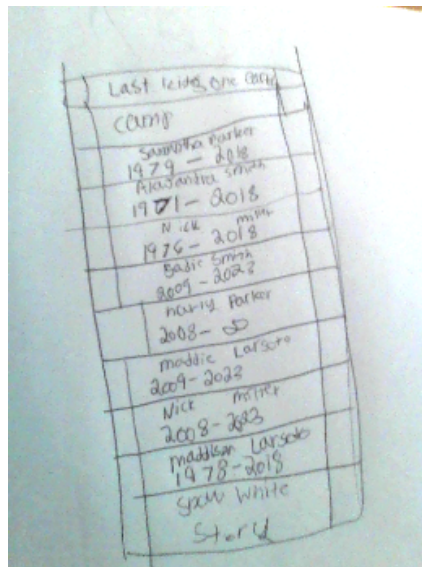 Last kids one earth
camp
Samntha Parker
1979 - 2018
Alaxandra Smith
1971 - 2018
Nick miller
1976 - 2018
Smith
2009 - 2023
harly Parker
2008 - ∞
maddie Larsoto
2009 - 2023
Nick miller
2008 - 2023
maddison Larsoto
1978 - 2018
Snow White
Story